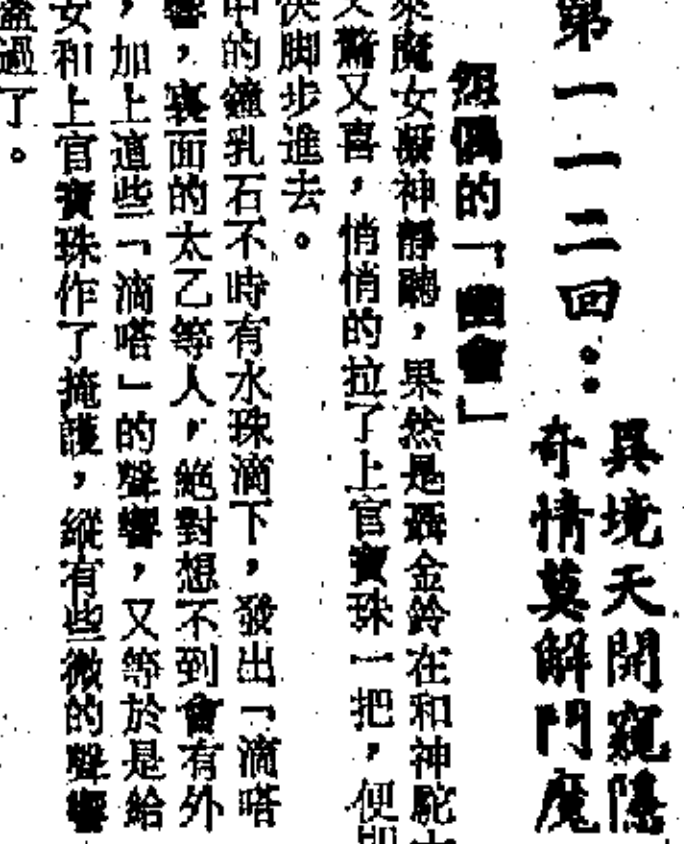 第一一二回：
異境天開窺隱
奇情莫解鬥魔
怨偶的「幽會」
來魔女凝神靜聽，果然是聶金鈴在和神駝
又驚又喜，悄悄的拉了上官寶珠一把，便即
快脚步進去。
中的鐘乳石不時有水珠滴下，發出「滴嗒
響，裏面的太乙等人，絕對想不到會有外
，加上這些「滴嗒」的聲響，又等於是給
女和上官寶珠作了掩護，縱有些微的聲響
蓋過了。